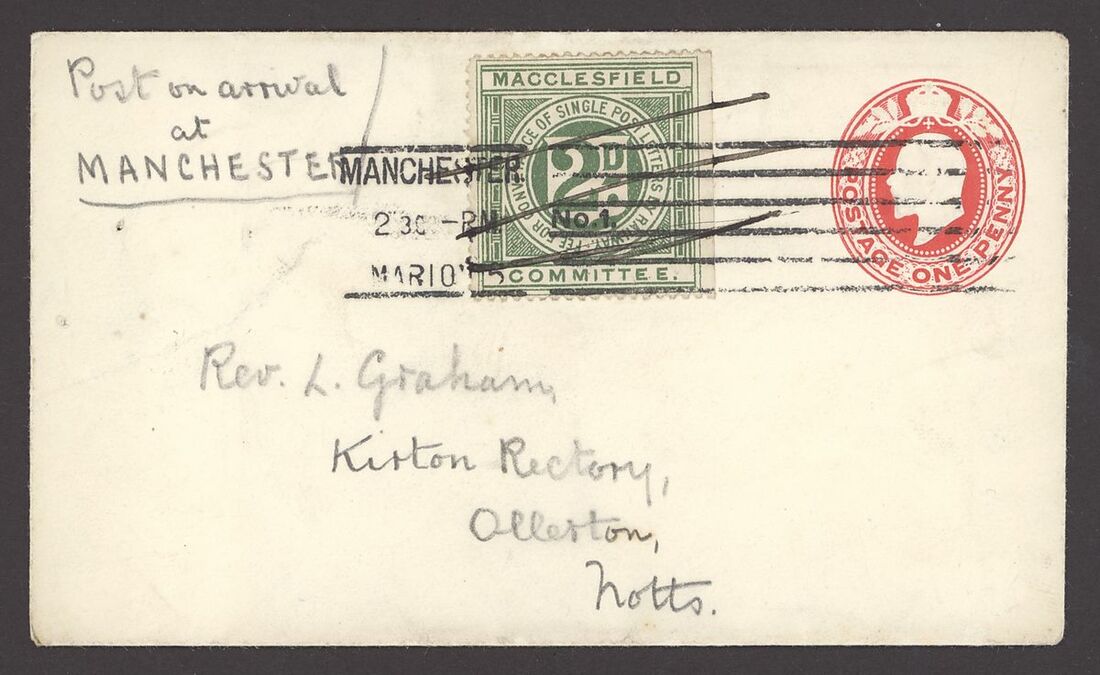 Post on arrival
at
MANCHESTER
MACCLESFIELD
FEE FOR CONVEYANCE OF SINGLE POST LETTERS BY RAILWAY
2D.
COMMITTEE.
MANCHESTER.
2 30 - PM No.1.
MAR 10
POSTAGE ONE PENNY
Rev. L. Graham,
Kirton Rectory,
Ollerton,
Notts.